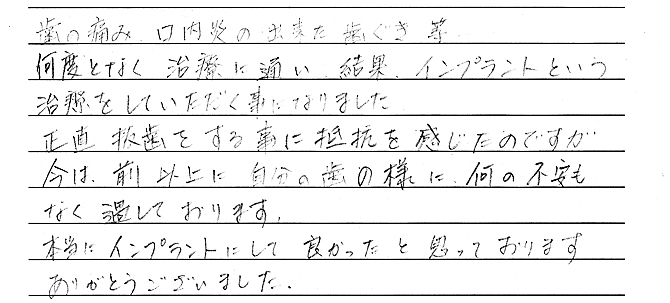 歯の痛み 口内炎の出来た歯ぐき等
何度となく 治療に通い 結果、インプラントという
治療をしていただく事になりました
正直 抜歯をする事に抵抗を感じたのですが
今は、前以上に 自分の歯の様に、何の不安も
なく 過しております。
本当にインプラントにして 良かったと思っております
ありがとうございました。